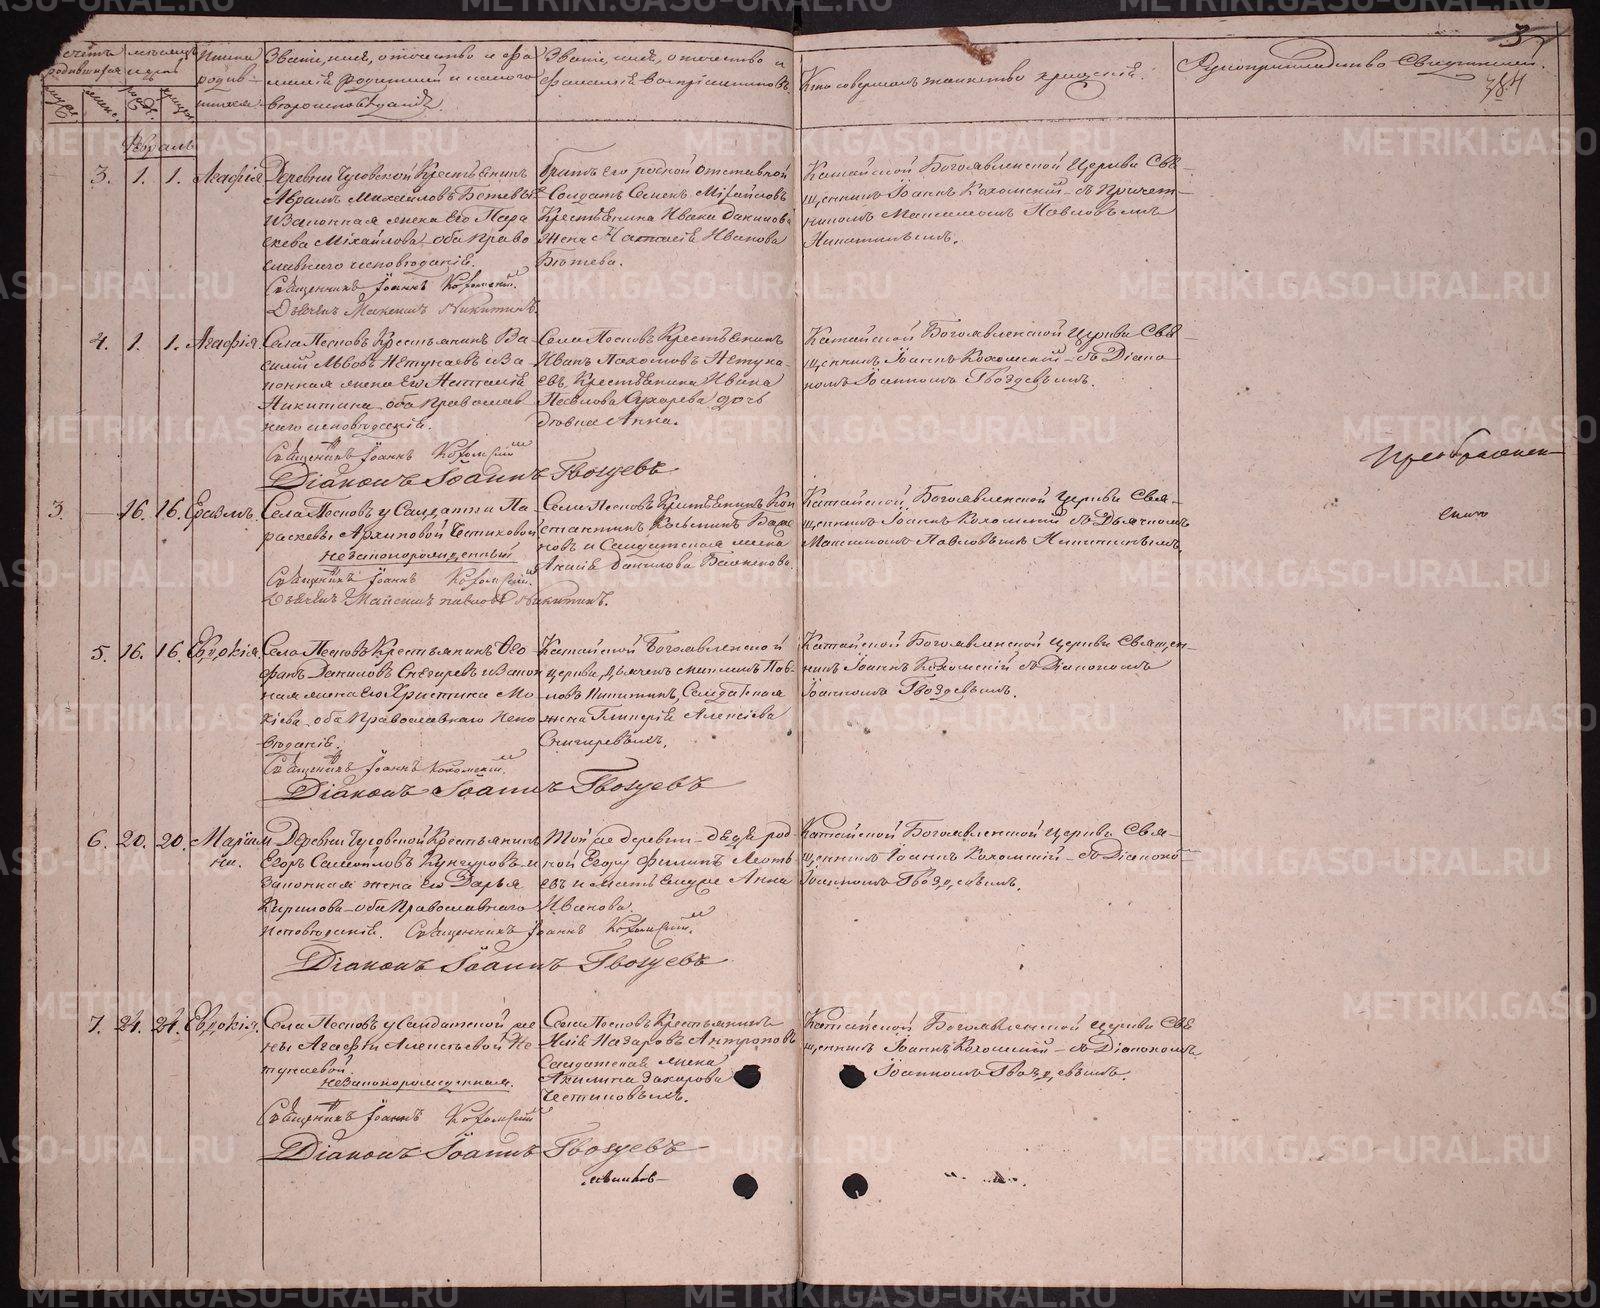 3
784
Счетъ родившихся
Мѣсяцъ и день
Имена родившихся
Званіе, имя, отчество и фамилія родителей и какого вѣроисповѣданія
Званіе, имя, отчество и фамилія воспріемниковъ
Кто совершалъ таинство крещенія
Рукоприкладство свидѣтелей
Февраль
3. 1. 1. Агафія
Деревни Чусовской Крестьянинъ
Аврамъ Михайловъ
и законная жена его Пара
скева Михайлова оба право
славнаго исповѣданія.
Священникъ Іоаннъ
Дьячекъ Максимъ Никитинъ.
Братъ его родной отставной
Солдатъ Семенъ Михайловъ
Крестьянина Ивана Данилова
жена Наталія Иванова
Катайской Богоявленской Церкви Свя
щенникъ Іоаннъ Кохомскій съ Причет
никомъ Максимомъ Павловымъ
Никитинымъ.
4. 1. 1. Агафія
Села Песковъ Крестьянинъ Ва
силій Львовъ Нетунаевъ и за
конная жена его Наталія
Никитина оба Православ
наго исповѣданія.
Священникъ Іоаннъ
Діаконъ Іоаннъ Гвоздевъ
Села Песковъ Крестьянинъ
Иванъ Пахомовъ Нетуна
евъ, Крестьянина Ивана
Павлова Сухарева дочь
дѣвица Анна.
Катайской Богоявленской Церкви Свя
щенникъ Іоаннъ Кохомскій съ Діако
номъ Іоанномъ Гвоздевымъ.
3. — 16. 16. Еразмъ.
Села Песковъ у Солдатки Па
раскевы Архиповой Чистиковой
незаконорожденный
Священникъ Іоаннъ
Дьячекъ Максимъ Павловъ Никитинъ.
Села Песковъ Крестьянинъ Кон
стантинъ Козьминъ
новъ и Солдатская жена
Данилова
Катайской Богоявленской Церкви Свя
щенникъ Іоаннъ Кохомскій съ Дьячкомъ
Максимомъ Павловымъ Никитинымъ.
Преображен
ско
5. 16. 16. Евдокія.
Села Песковъ Крестьянинъ Ѳео
фанъ Даниловъ Снегиревъ и закон
ная жена его Христина Мо
кіева оба Православнаго испо
вѣданія.
Священникъ Іоаннъ
Діаконъ Іоаннъ Гвоздевъ
Катайской Богоявленской
церкви Дьячекъ Максимъ Пав
ловъ Никитинъ, Солдатская
жена Гликерія Алексіева
Снигиревыхъ.
Катайской Богоявленской Церкви Священ
никъ Іоаннъ Кохомскій съ Діакономъ
Іоанномъ Гвоздевымъ.
6. 20. 20.
Деревни Чусовской Крестьянинъ
Егоръ Самойловъ Кунгуровъ и
законная жена его Дарья
Кирилова оба Православнаго
исповѣданія. Священникъ Іоаннъ
Діаконъ Іоаннъ Гвоздевъ
Той же деревни дядя род
ной Егору Филипъ Леоть
евъ и мать ему же Анна
Иванова.
Катайской Богоявленской Церкви Свя
щенникъ Іоаннъ Кохомскій съ Діакономъ
Іоанномъ Гвоздевымъ.
7. 24. 24. Евдокія.
Села Песковъ у Солдатской же
ны Агафьи Алексѣевой Не
тунаевой
незаконорожденная.
Священникъ Іоаннъ
Діаконъ Іоаннъ Гвоздевъ
Села Песковъ Крестьянинъ
Илія Назаровъ Антроповъ
Солдатская жена
Акилина Захарова
Чистиковыхъ.
Катайской Богоявленской Церкви Свя
щенникъ Іоаннъ Кохомскій съ Діакономъ
Іоанномъ Гвоздевымъ.
METRIKI.GASO-URAL.RU